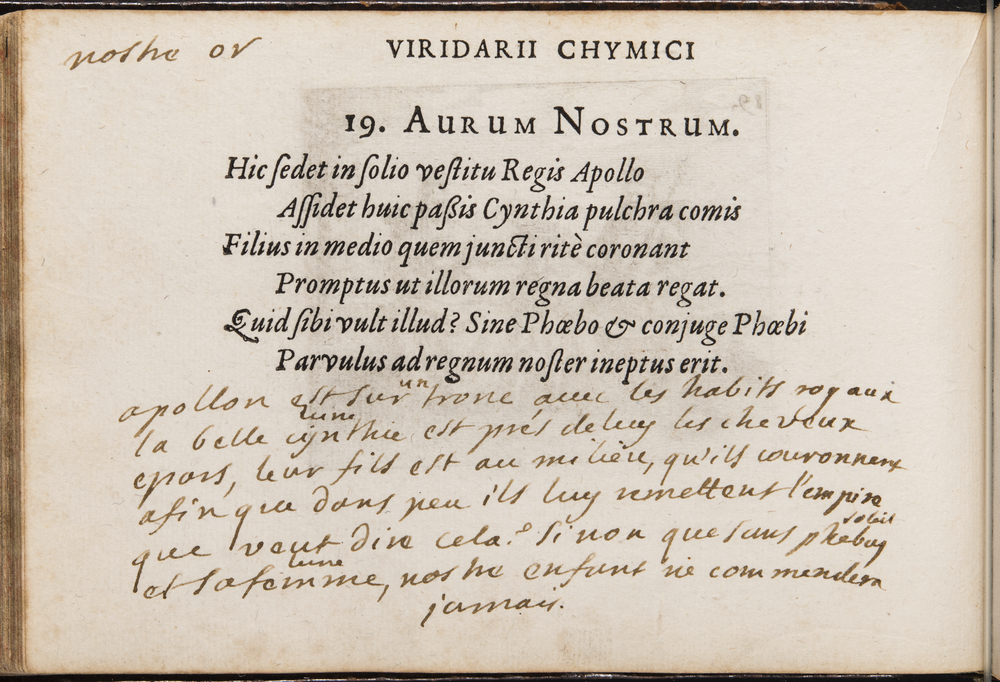 nostre or
VIRIDARII CHYMICI
19. AURUM NOSTRUM.
Hic ſedet in ſolio veſtitu Regis Apollo
Aſſidet huic paßis Cynthia pulchra comis
Filius in medio quem juncti ritè coronant
Promptus ut illorum regna beata regat.
Quid ſibi vult illud? Sine Phœbo & conjuge Phœbi
Parvulus ad regnum noſter ineptus erit.
un
apollon est sur trone avec les habits royaux
lune
la belle cynthie est prés de luy les cheveux
epars, leur fils est au milieu, qu'ils couronnent
afin que dans peu ils luy remettent l'empire
soleil
que veut dire cela? Sinon que sans phebus
lune
et sa femme, nostre enfant ne commendera
jamais.